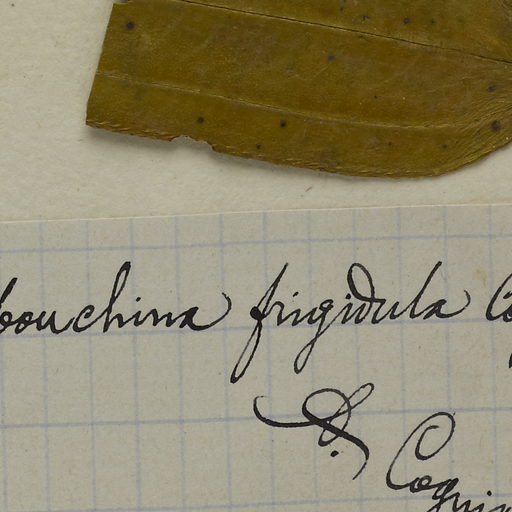 bouchina frigidula Co
D. Cogni